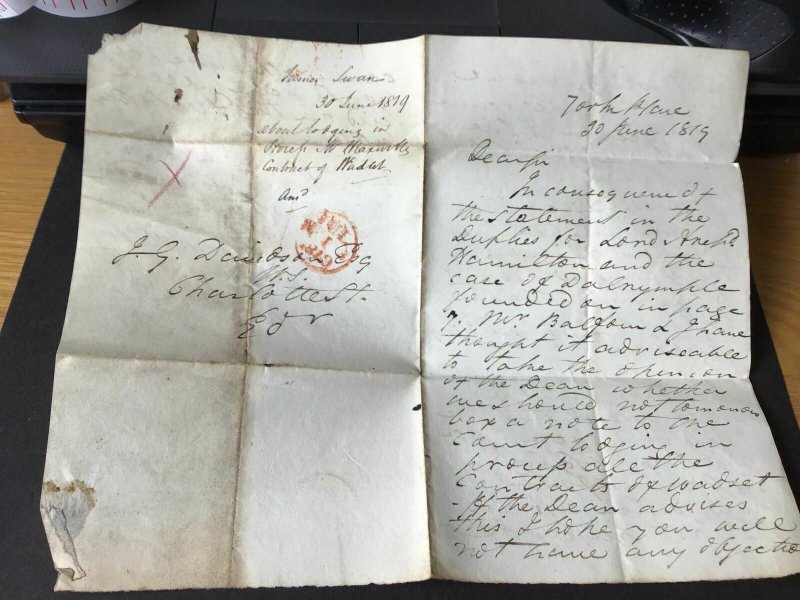 James Swan
30 June 1819
about lodging in
Process Mr Maxwells
Contract of Wadset
Ansd
JUL
1
1819
J. G. Davidson Esq
W.S.
Charlotte St.
Edr
York Place
30 June 1819
Dear Sir
In consequence of
the statement in the
Duplies for Lord Archd
Hamilton and the
case of Dalrymple
founded on in page
7. Mr. Balfour & I have
thought it adviseable
to take the opinion
of the Dean whether
we should not tomorrow
box a note to the
Court lodging in
process all the
Contracts of wadset
If the Dean advises
this I hope you will
not have any objectio